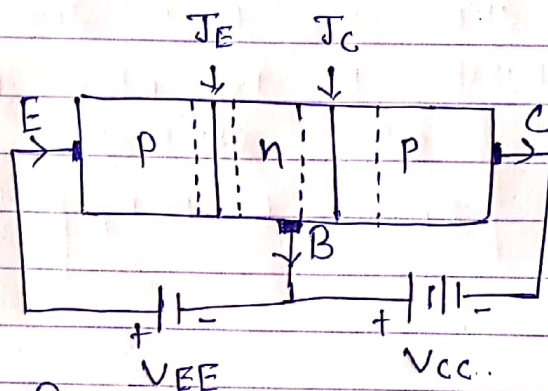 JE JC
E P n P C
B
+ - + -
VEE VCC..